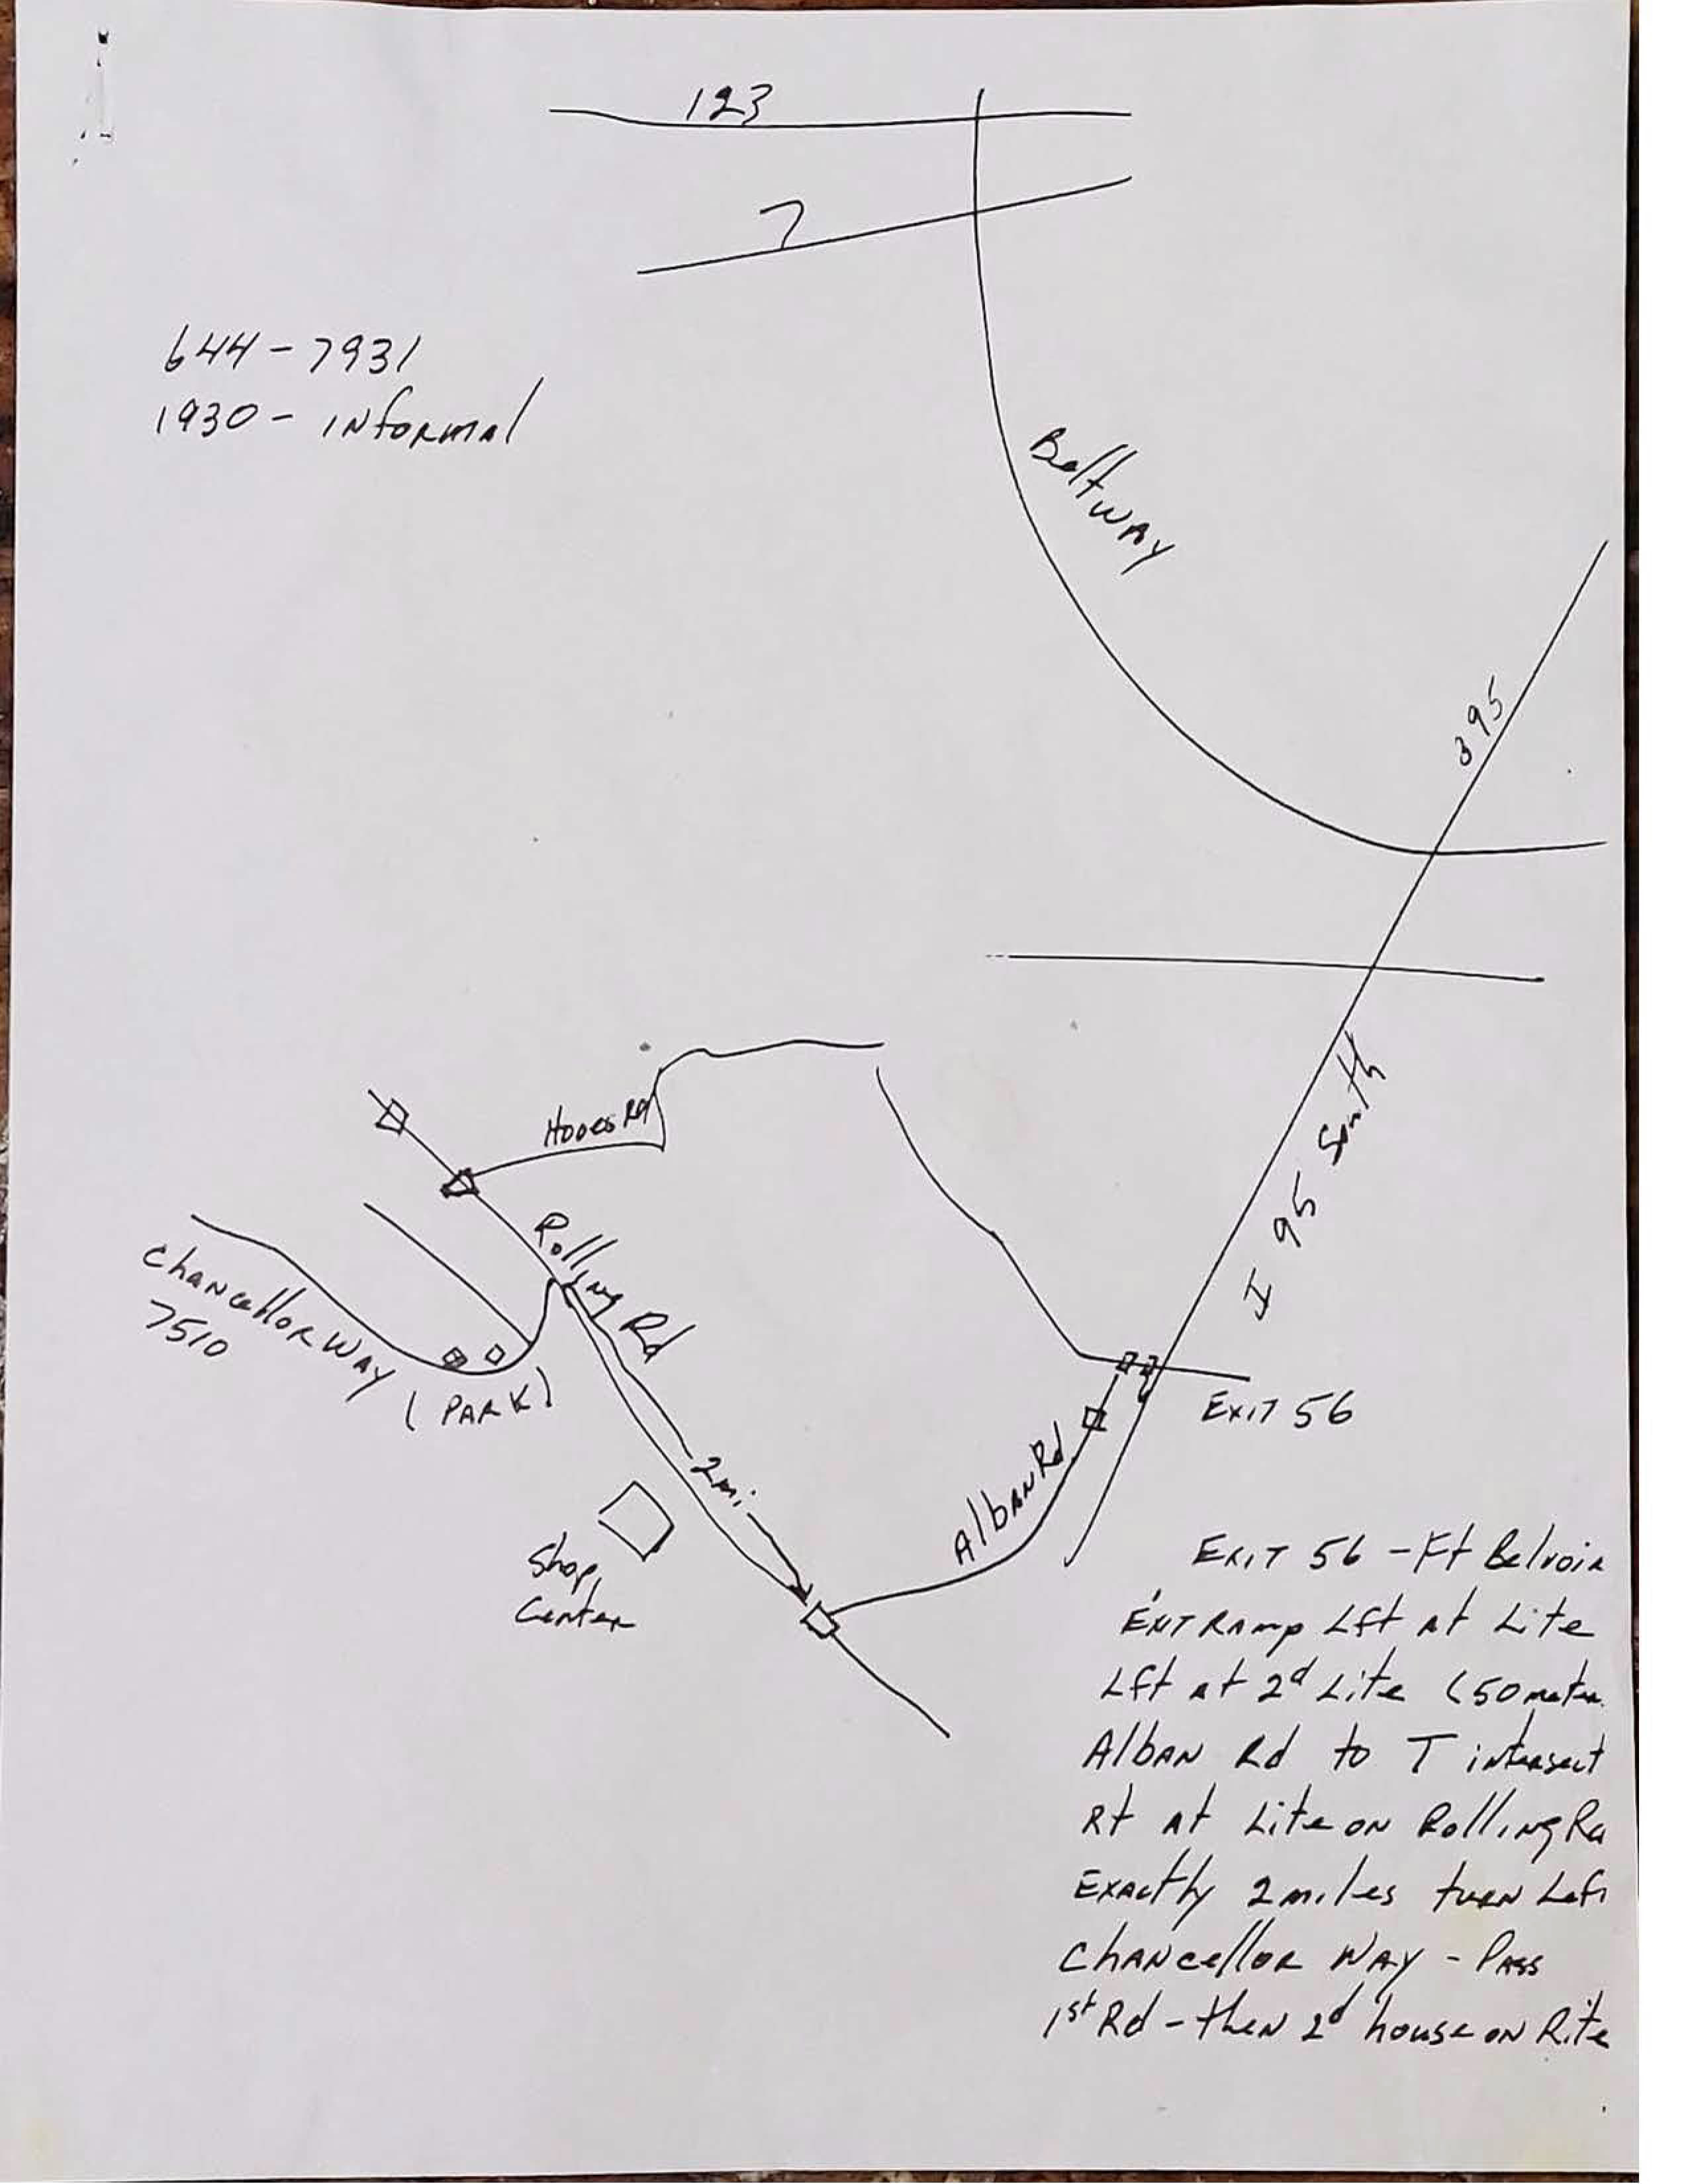 123
7
644-7931
1930 - INformal
Beltway
395
I 95 South
Hooes Rd
Rolling Rd
Chancellor Way
7510
(PARK)
2mi.
Exit 56
Alban Rd
Shop,
Center
Exit 56 - Ft Belvoir
Ext Ramp Lft at Lite
Lft at 2d Lite (50 meter
Alban Rd to T intersect
Rt at Lite on Rolling Rd
Exactly 2 miles turn Left
Chancellor Way - Pass
1st Rd - then 2d house on Rite